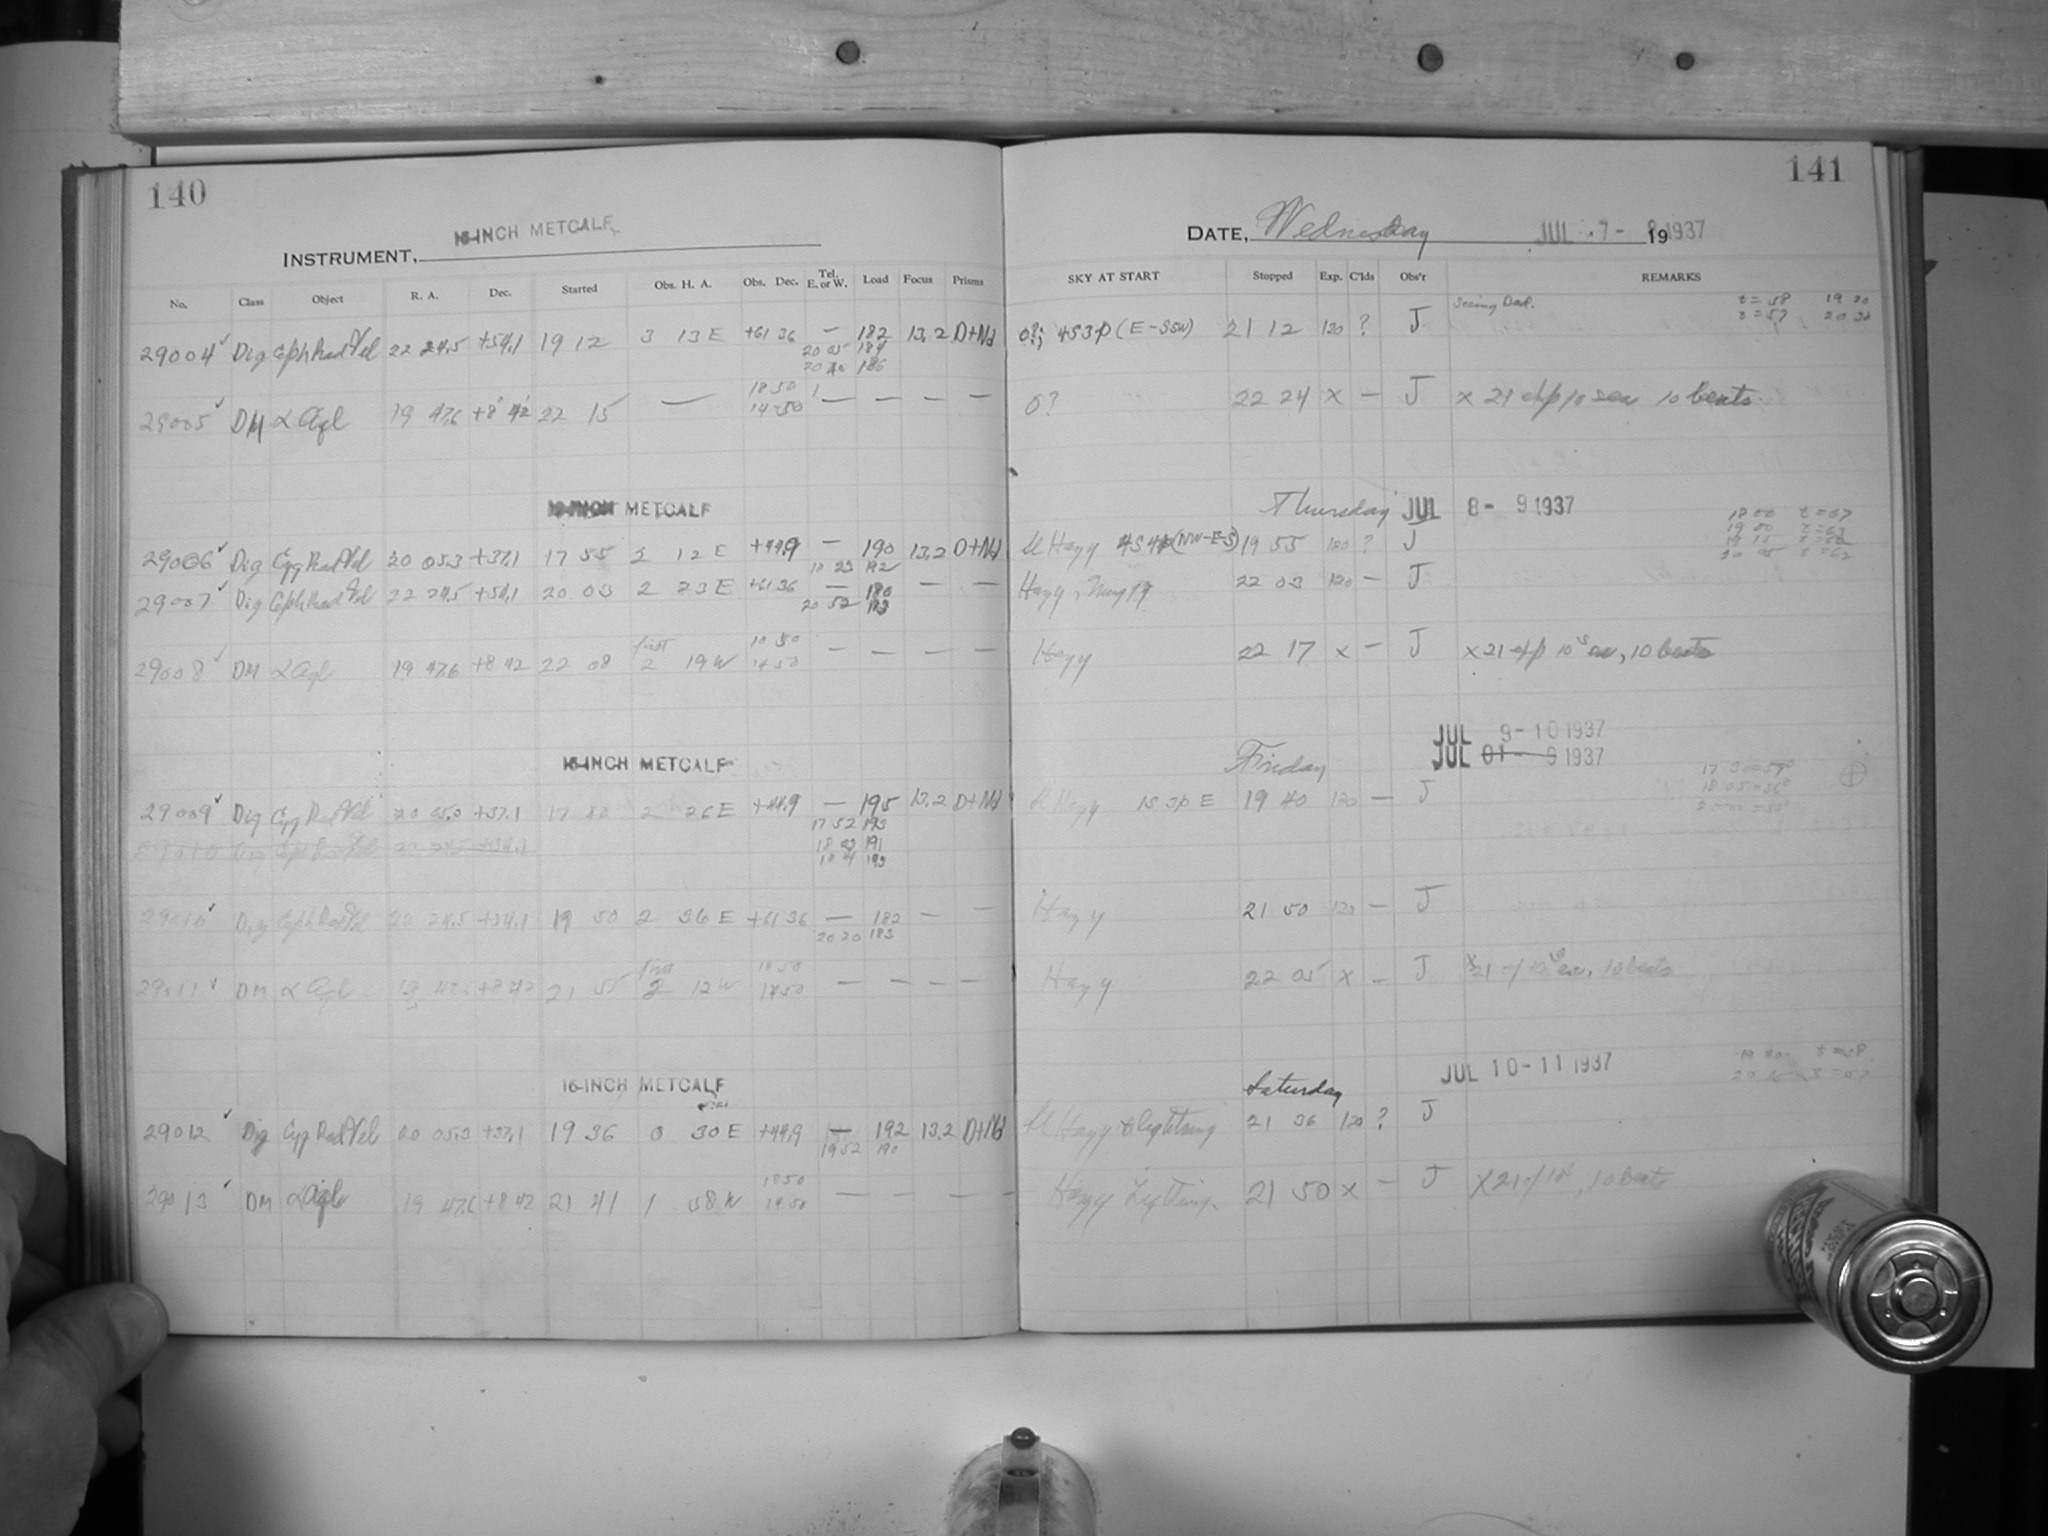 140
16-INCH METCALF
INSTRUMENT,
No. Class Object R. A. Dec. Started Obs. H. A. Obs. Dec. Tel. E. or W. Load Focus Prisms
29004 ✓ Dig Ceph Rad Vel 22 24.5 +54.1 19 12 3 13 E +61 36 — 182 13.2 D+Nd
20 05 184
186
29005 ✓ DM α Aql 19 47.6 +8 42 22 15 — 18 50 14 50 — — — —
METCALF
29006 ✓ Dig Cyg Rad Vel 20 05.3 +37.1 17 55 2 12 E +44.9 — 190 13.2 D+Nd
192
29007 ✓ Dig Ceph Rad Vel 22 24.5 +54.1 20 03 2 23 E +61 36 — 180 — —
20 52 183
29008 ✓ DM α Aql 19 47.6 +8 42 22 08 first 2 19 W 14 50 — — — —
16-INCH METCALF
29009 ✓ Dig Cyg Rad Vel 20 05.3 +37.1 17 40 2 26 E +44.9 — 195 13.2 D+Nd
17 52 193
191
193
29010 Dig Ceph Rad Vel 22 24.5 +54.1
29010 ✓ Dig Ceph Rad Vel 22 24.5 +54.1 19 50 2 36 E +61 36 — 182 — —
20 20 183
29011 ✓ DM α Aql 19 47.6 +8 42 21 55 first 2 12 W 14 50 — — — —
16-INCH METCALF
29012 ✓ Dig Cyg Rad Vel 20 05.3 +37.1 19 36 0 30 E +44.9 — 192 13.2 D+Nd
19 52 190
29013 ✓ DM α Aql 19 47.6 +8 42 21 41 1 58 W 18 50 14 50 — — — —
141
DATE, Wednesday JUL 7 - 8 1937 19
SKY AT START Stopped Exp. C'lds Obs'r REMARKS
4S3p (E-SSW) 21 12 120 ? J Seeing Bad. t = 58 19 20
t = 57 20 30
0? 22 24 x — J x 21 exp 10 sec 10 beats.
Thursday JUL 8 - 9 1937
Hazy 4S4p (NW-E-S) 19 55 120 ? J
Hazy, 22 03 120 — J
Hazy 22 17 x — J x 21 exp 10s ea, 10 beats
JUL 9 - 10 1937
Friday JUL 01 - 9 1937
Hazy 1S 3p E 19 40 120 — J
Hazy 21 50 120 — J
Hazy 22 05 x — J x 21 of 10s ea, 10 beats
JUL 10 - 11 1937
Saturday
Hazy & lightning 21 36 120 ? J
Hazy Lightning. 21 50 x — J x 21 of 10s, 10 beats